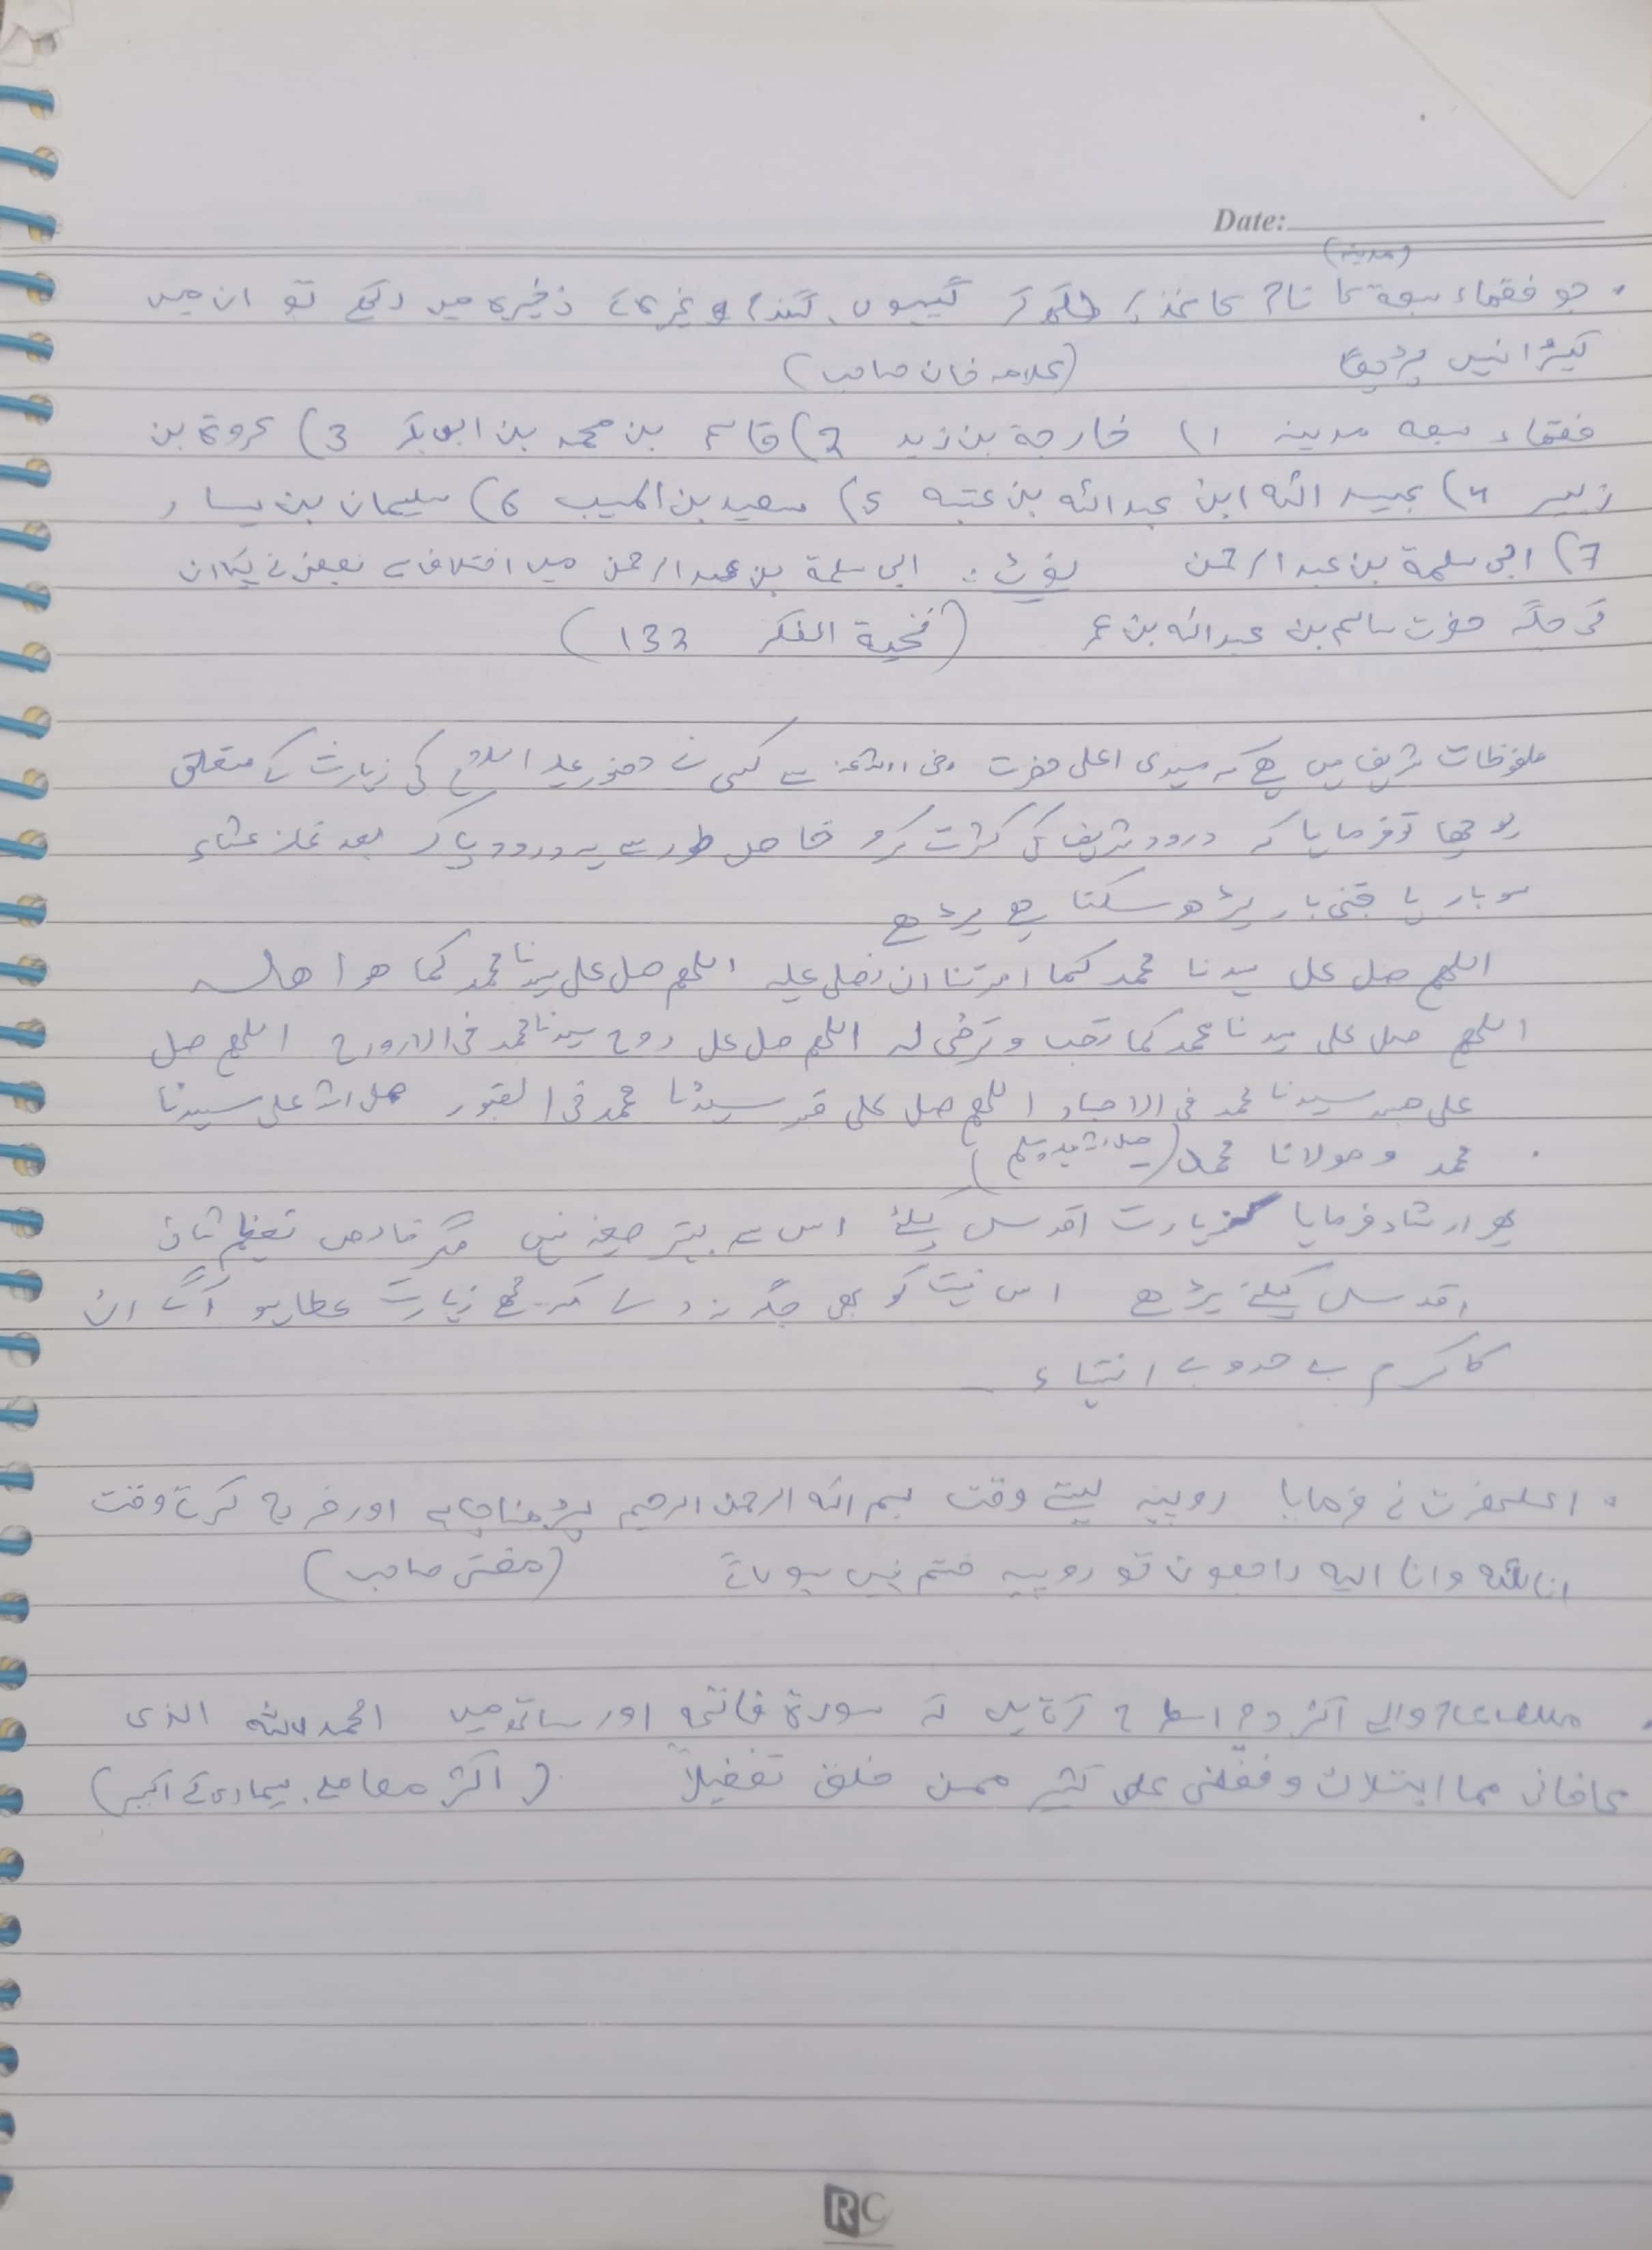 Date:
(مدینہ)
۰ جو فقھاء سبعۃ کا نام کاغذ پر لکھ کر گیہوں، گندم وغیرہ کے ذخیرہ میں رکھے تو ان میں
کیڑا نہیں پڑیگا (علامہ خان صاحب)
فقھاء سبعہ مدینہ 1) خارجۃ بن زید 2) قاسم بن محمد بن ابوبکر 3) عروۃ بن
زبیر 4) عبید اللہ ابن عبداللہ بن عتبہ 5) سعید بن المسیب 6) سلیمان بن یسار
7) ابی سلمۃ بن عبد الرحمن نوٹ: ابی سلمۃ بن عبد الرحمن میں اختلاف ہے بعض نے کہا ان
کی جگہ حضرت سالم بن عبداللہ بن عمر (نخبۃ الفکر 132)
ملفوظات شریف میں ہے کہ سیدی اعلی حضرت رضی اللہ عنہ سے کسی نے حضور علیہ السلام کی زیارت کے متعلق
پوچھا تو فرمایا کہ درود شریف کی کثرت کرو خاص طور سے یہ درود پاک بعد نماز عشاء
سو بار یا جتنی بار پڑھ سکتا ہے پڑھے
اللھم صل علی سیدنا محمد کما امرتنا ان نصلی علیہ اللھم صل علی سیدنا محمد کما ھو اھلہ
اللھم صل علی سیدنا محمد کما تحب وترضی لہ اللھم صل علی روح سیدنا محمد فی الارورح اللھم صل
علی جسد سیدنا محمد فی الاجساد اللھم صل علی قبر سیدنا محمد فی القبور صل اللہ علی سیدنا
محمد ومولانا محمد (صلی اللہ علیہ وسلم)
پھر ارشاد فرمایا زیارت اقدس کیلئے اس سے بہتر صیغہ نہیں مگر خالص تعظیم شان
اقدس کیلئے پڑھے اس نیت کو بھی جگہ نہ دے کہ مجھے زیارت عطا ہو آگے ان
کا کرم بے حد و بے انتہاء
۰ اعلیحضرت نے فرمایا روپیہ لیتے وقت بسم اللہ الرحمن الرحیم پڑھنا چاہیے اور خرچ کرتے وقت
انا للہ وانا الیہ راجعون تو روپیہ ختم نہیں ہوگا (مفتی صاحب)
والے اکثر دم اسطرح کرتے ہیں کہ سورۃ فاتحہ اور ساتھ میں الحمد للہ الذی
عافانی مما ابتلاک وفضّلنی علی کثیر ممن خلق تفضیلاً (اکثر معاملے، بیماری کے
RC